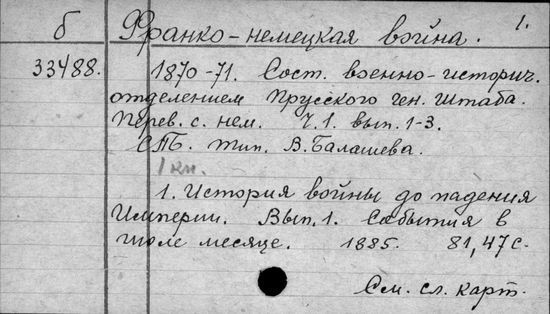 б Франко-немецкая война. 1.
33488. 1870-71. Сост. военно-историч.
отделением Прусского ген. штаба.
Перев. с. нем. Ч.1. вып. 1-3.
СПБ. тип. В.Балашева.
1 кн.
1. История войны до падения
Империи. Вып.1. События в
июле месяце. 1885. 81,47с.
См. сл. карт.